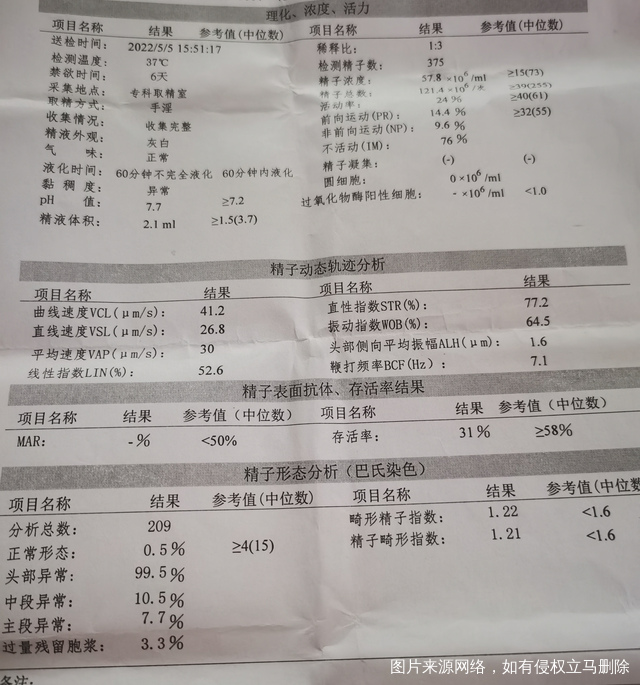 理化、浓度、活力
项目名称 结果 参考值(中位数) 项目名称 结果 参考值(中位数)
送检时间: 2022/5/5 15:51:17 稀释比: 1:3
检测温度: 37℃ 检测精子数: 375
禁欲时间: 6天 精子浓度: 57.8 ×10⁶/ml ≥15(73)
采集地点: 专科取精室 精子总数: 121.4 ×10⁶/次 ≥39(255)
取精方式: 手淫 活动率: 24 % ≥40(61)
收集情况: 收集完整 前向运动(PR): 14.4 % ≥32(55)
精液外观: 灰白 非前向运动(NP): 9.6 %
气 味: 正常 不活动(IM): 76 %
液化时间: 60分钟不完全液化 60分钟内液化 精子凝集: (-) (-)
黏 稠 度: 异常 圆细胞: 0 ×10⁶/ml
pH 值: 7.7 ≥7.2 过氧化物酶阳性细胞: - ×10⁶/ml <1.0
精液体积: 2.1 ml ≥1.5(3.7)
精子动态轨迹分析
项目名称 结果 项目名称 结果
曲线速度VCL(μm/s): 41.2 直性指数STR(%): 77.2
直线速度VSL(μm/s): 26.8 振动指数WOB(%): 64.5
平均速度VAP(μm/s): 30 头部侧向平均振幅ALH(μm): 1.6
线性指数LIN(%): 52.6 鞭打频率BCF(Hz): 7.1
精子表面抗体、存活率结果
项目名称 结果 参考值(中位数) 项目名称 结果 参考值(中位数)
MAR: -% <50% 存活率: 31% ≥58%
精子形态分析（巴氏染色）
项目名称 结果 参考值(中位数) 项目名称 结果 参考值(中位数)
分析总数: 209 畸形精子指数: 1.22 <1.6
正常形态: 0.5% ≥4(15) 精子畸形指数: 1.21 <1.6
头部异常: 99.5%
中段异常: 10.5%
主段异常: 7.7%
过量残留胞浆: 3.3%
备注:
图片来源网络，如有侵权立马删除